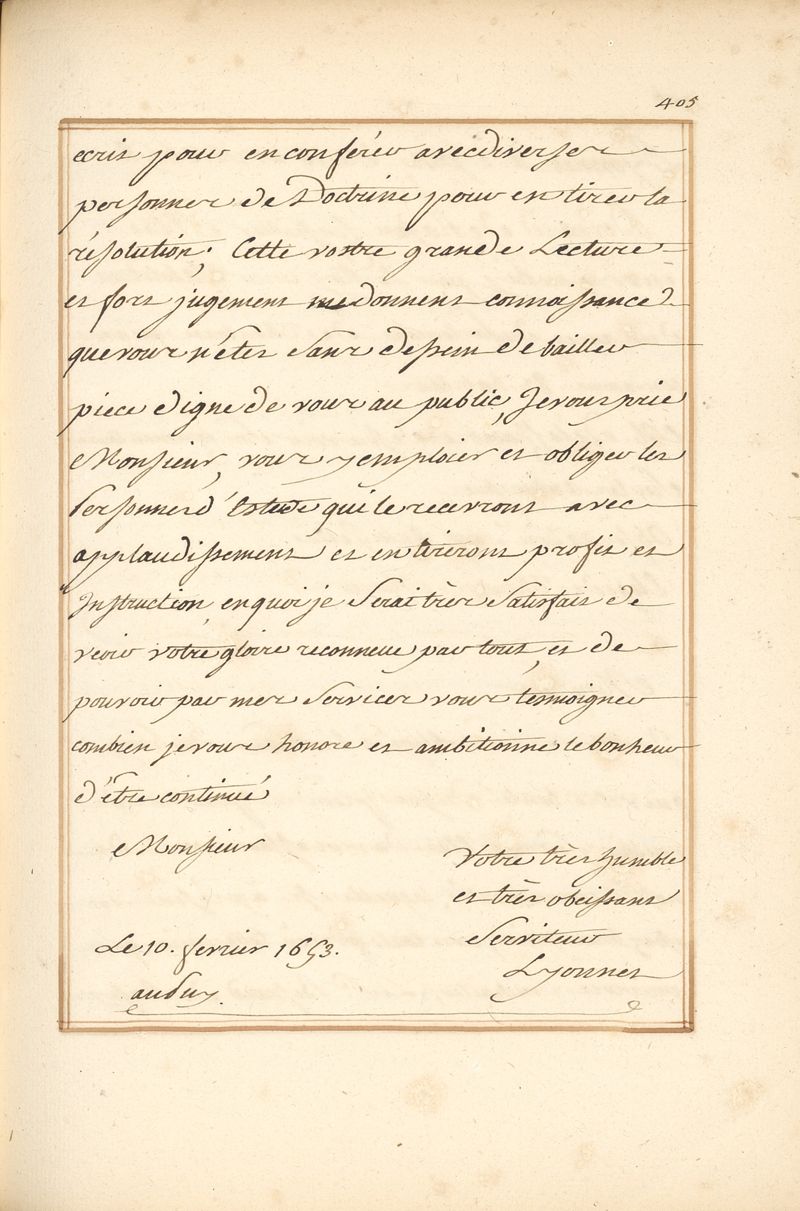 405
ecrit pour en conférer avec diverses
personnes de Doctrine pour en tirer la
résolution; Cette vostre grande Lecture
et fort jugement me donnent connoissance
que vous n'étes sans dessein de bailler
piece digne de vous au public, Je vous prie
Monsieur, vous y emploier et obliger les
Personnes d'Estude qui le recevront avec
applaudissement et en tireront profit et
Instruction, en quoi je serai très satisfait de
veoir votre gloire reconneue par tout, et de
pouvoir par mes services vous temoigner
combien je vous honore et ambitionne le bonheur
d'être continué
Monsieur
Votre très humble
et très obeissant
Serviteur
Lyonnet
Le 10. fevrier 1653.
au Puy.